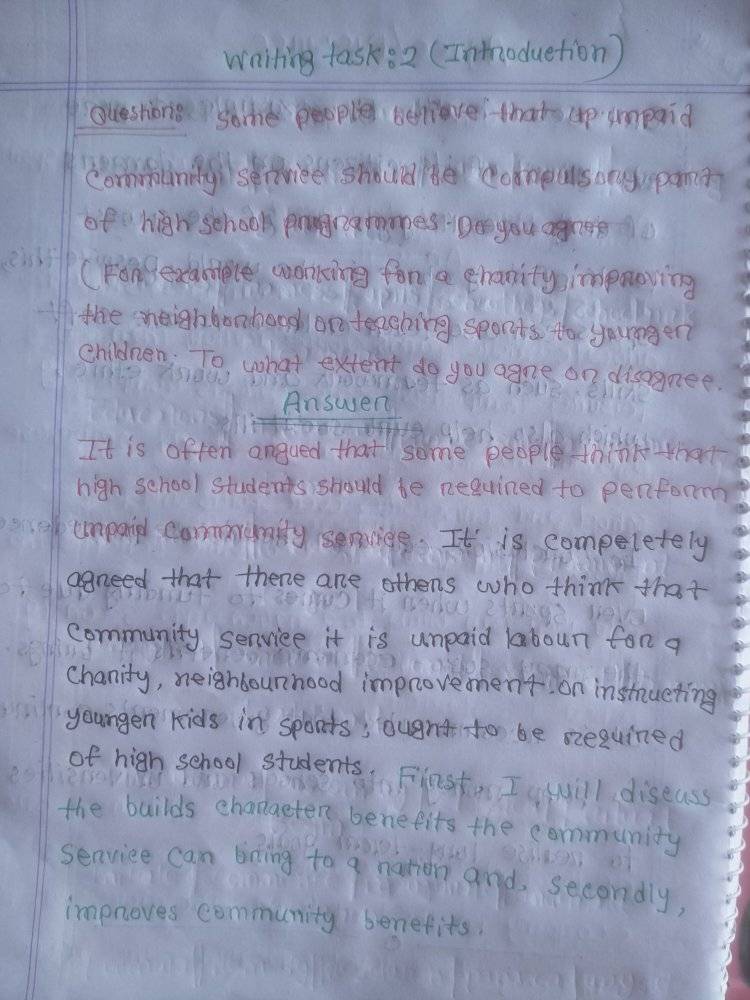 Writing task:2 (Introduction)
Question: Some people believe that up unpaid
Community service should be compulsory part
of high school programmes. Do you agree
(For example working for a charity, improving
the neighborhood or teaching sports to younger
children. To what extent do you agre or disagree.
Answer
It is often argued that some people think that
high school students should be required to perform
unpaid community service. It is compeletely
agreed that there are others who think that
community service it is unpaid labour for a
charity, neighbourhood improvement or instructing
younger kids in sports, ought to be required
of high school students. First, I will discuss
the builds character benefits the community
service can bring to a nation and, secondly,
improves community benefits.